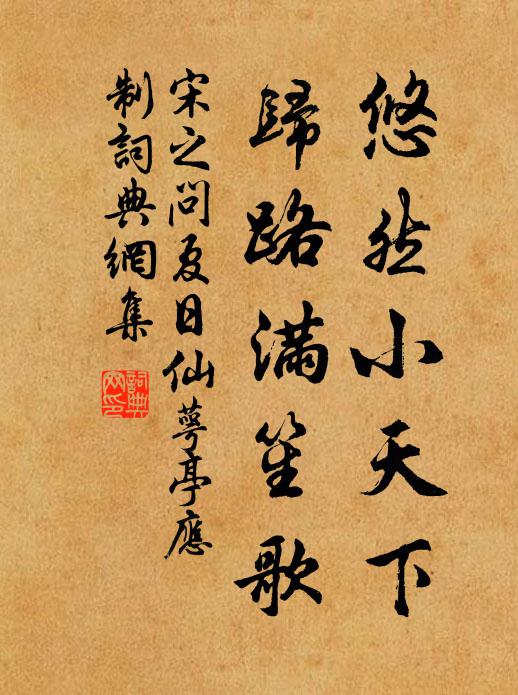 悠然小天下
歸路滿笙歌
宋之问夏日仙萼亭應
制詞典網集
詞典网印